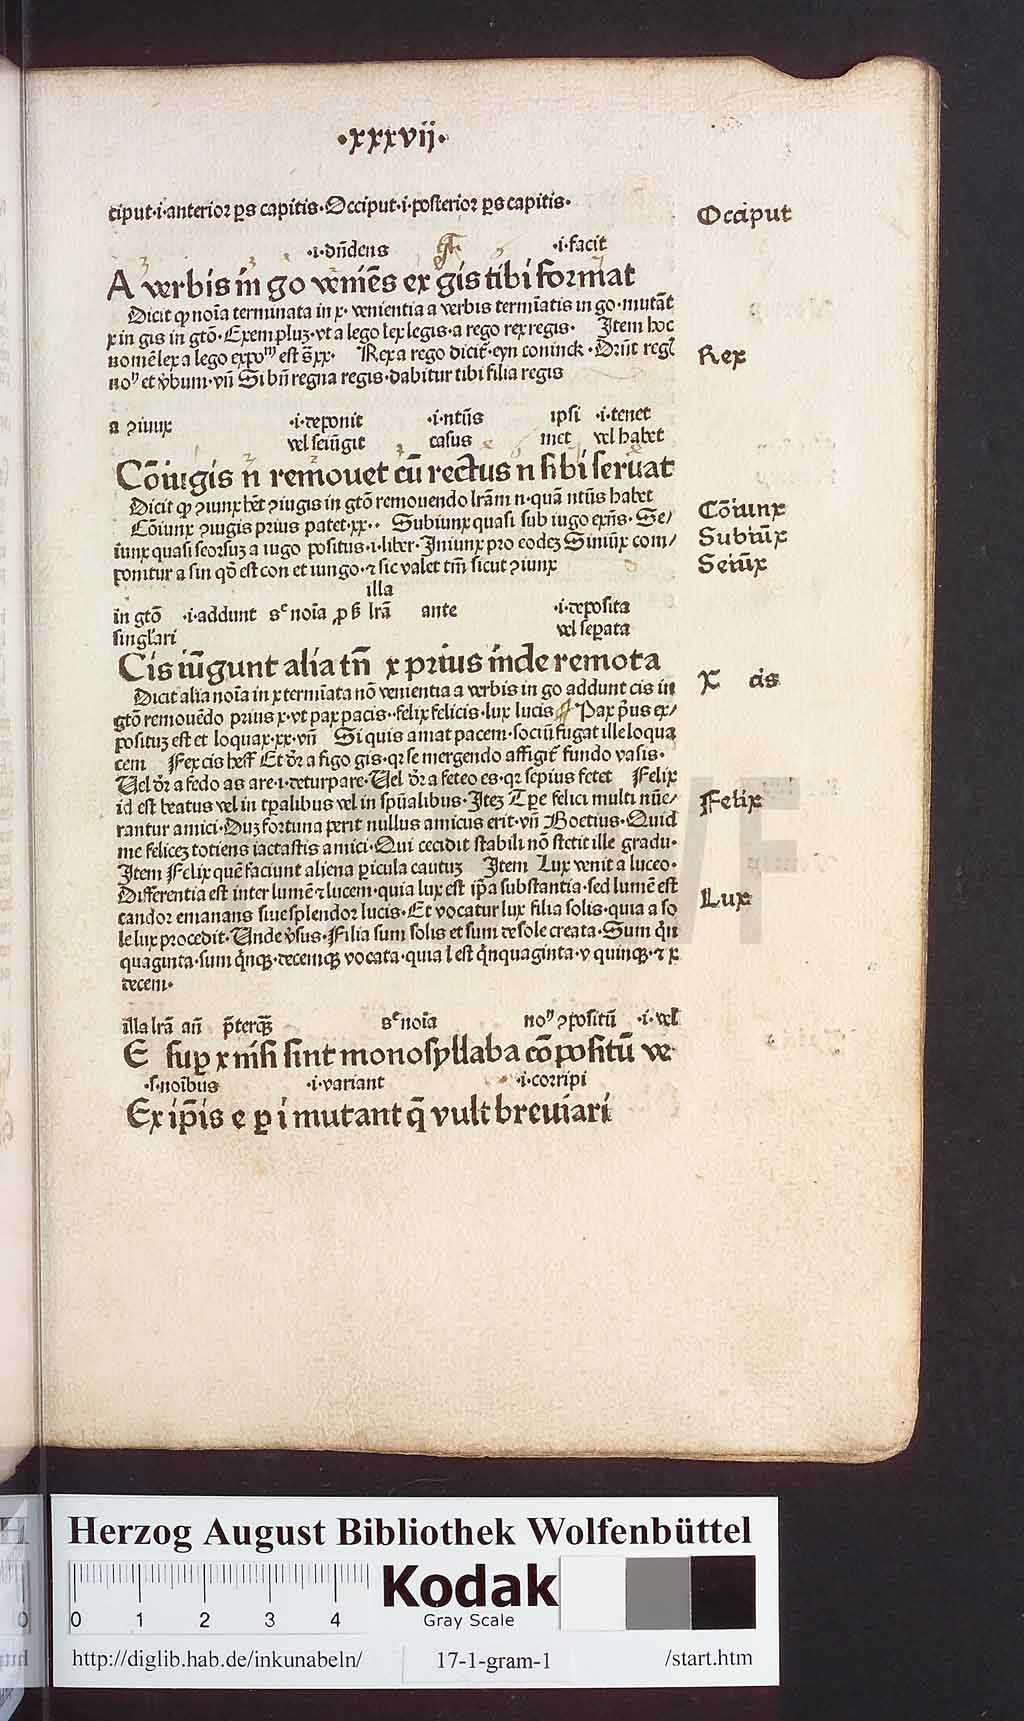 ·xxxvij·
ciput·i·anterior ꝑs capitis·Occiput·i·posterior ꝑs capitis·
Occiput
·i·dn̄dens ·i·facit
A verbis in̄ go veniēs ex gis tibi format
Dicit ꝙ noīa terminata in x· venientia a verbis termīatis in go·mutāt
x in gis in gtō·Exempluꝫ·vt a lego lex legis·a rego rex regis· Item hoc
nomē lex a lego expoᵐ est s̄ xx· Rex a rego dicit᷑·eyn coninck·
Rex
noⁿ et v̓bum·vn̄ Si bn̄ regna regis·dabitur tibi filia regis
a ꝯiunx ·i·deponit ·i·ntūs ipsi ·i·tenet
vel seiūgit casus met vel habet
Cōiugis n̄ remouet cū rectus n sibi seruat
Dicit ꝙ ꝯiunx hēt ꝯiugis in gtō remouendo lrām n·quā ntūs habet
Cōiunx ꝯiugis prius patet·xx·· Subiunx quasi sub iugo exn̄s·Se/
Cōiunx
iūnx quasi seorsuꝫ a iugo positus·i·liber·Iniunx pro eodeꝫ Siniūx com/
Subiūx
ponitur a sin qō est con et iungo·⁊ sic valet tm̄ sicut ꝯiunx
Seiūx
illa
in gtō ·i·addunt sᶜ noīa lrā ante ·i·deposita
singl̄ari vel seꝑata
Cis iūgunt alia tn̄ x prius īnde remota
Dicit alia noīa in x termīata nō venientia a verbis in go addunt cis in
X cis
gtō remouēdo prius x·vt pax pacis··felix felicis·lux lucis Pax p̄us ex/
posituꝫ est et loquax·xx·vn̄ Si quis amat pacem·sociū fugat ille loqua
cem Fex cis heff Et dr̄ a figo gis·qꝛ se mergendo affigit᷑ fundo vasis·
Vel dr̄ a fedo as are·i·deturpare·Vel dr̄ a feteo es·qꝛ sepius fetet Felix
id est beatus vel in tꝑalibus vel in spūalibus·Iteꝫ Tꝑe felici multi nūe/
Felix
rantur amici·Duꝫ fortuna perit nullus amicus erit·vn̄ Boetius·Quid
me feliceꝫ totiens iactastis amici·Qui cecidit stabili nō stetit ille gradu·
Item Felix quē faciunt aliena ꝑicula cautuꝫ Item Lux venit a luceo·
Differentia est inter lumē ⁊ lucem·quia lux est ip̄a substantia·sed lumē est
candor emanans siue splendor lucis·Et vocatur lux filia solis·quia a so
Lux
le lux procedit·Vnde v̓sus·Filia sum solis et sum de sole creata·Sum qͥn
quaginta·sum qͥnqꝫ·decemqꝫ vocata·quia l est qͥnquaginta·v quinqꝫ·⁊ x
decem·
illa lrā an̄ p̄terqꝫ̄ sᶜ noīa noⁿ ꝯpositū ·i·vel
E suꝑ x nisi sint monosyllaba cōpositū ve
·s·noībus ·i·variant ·i·corripi
Ex ip̄is e ꝑ i mutant q̄ vult breuiari
Herzog August Bibliothek Wolfenbüttel
0 1 2 3 4
Kodak
Gray Scale
http://diglib.hab.de/inkunabeln/ 17-1-gram-1 /start.htm